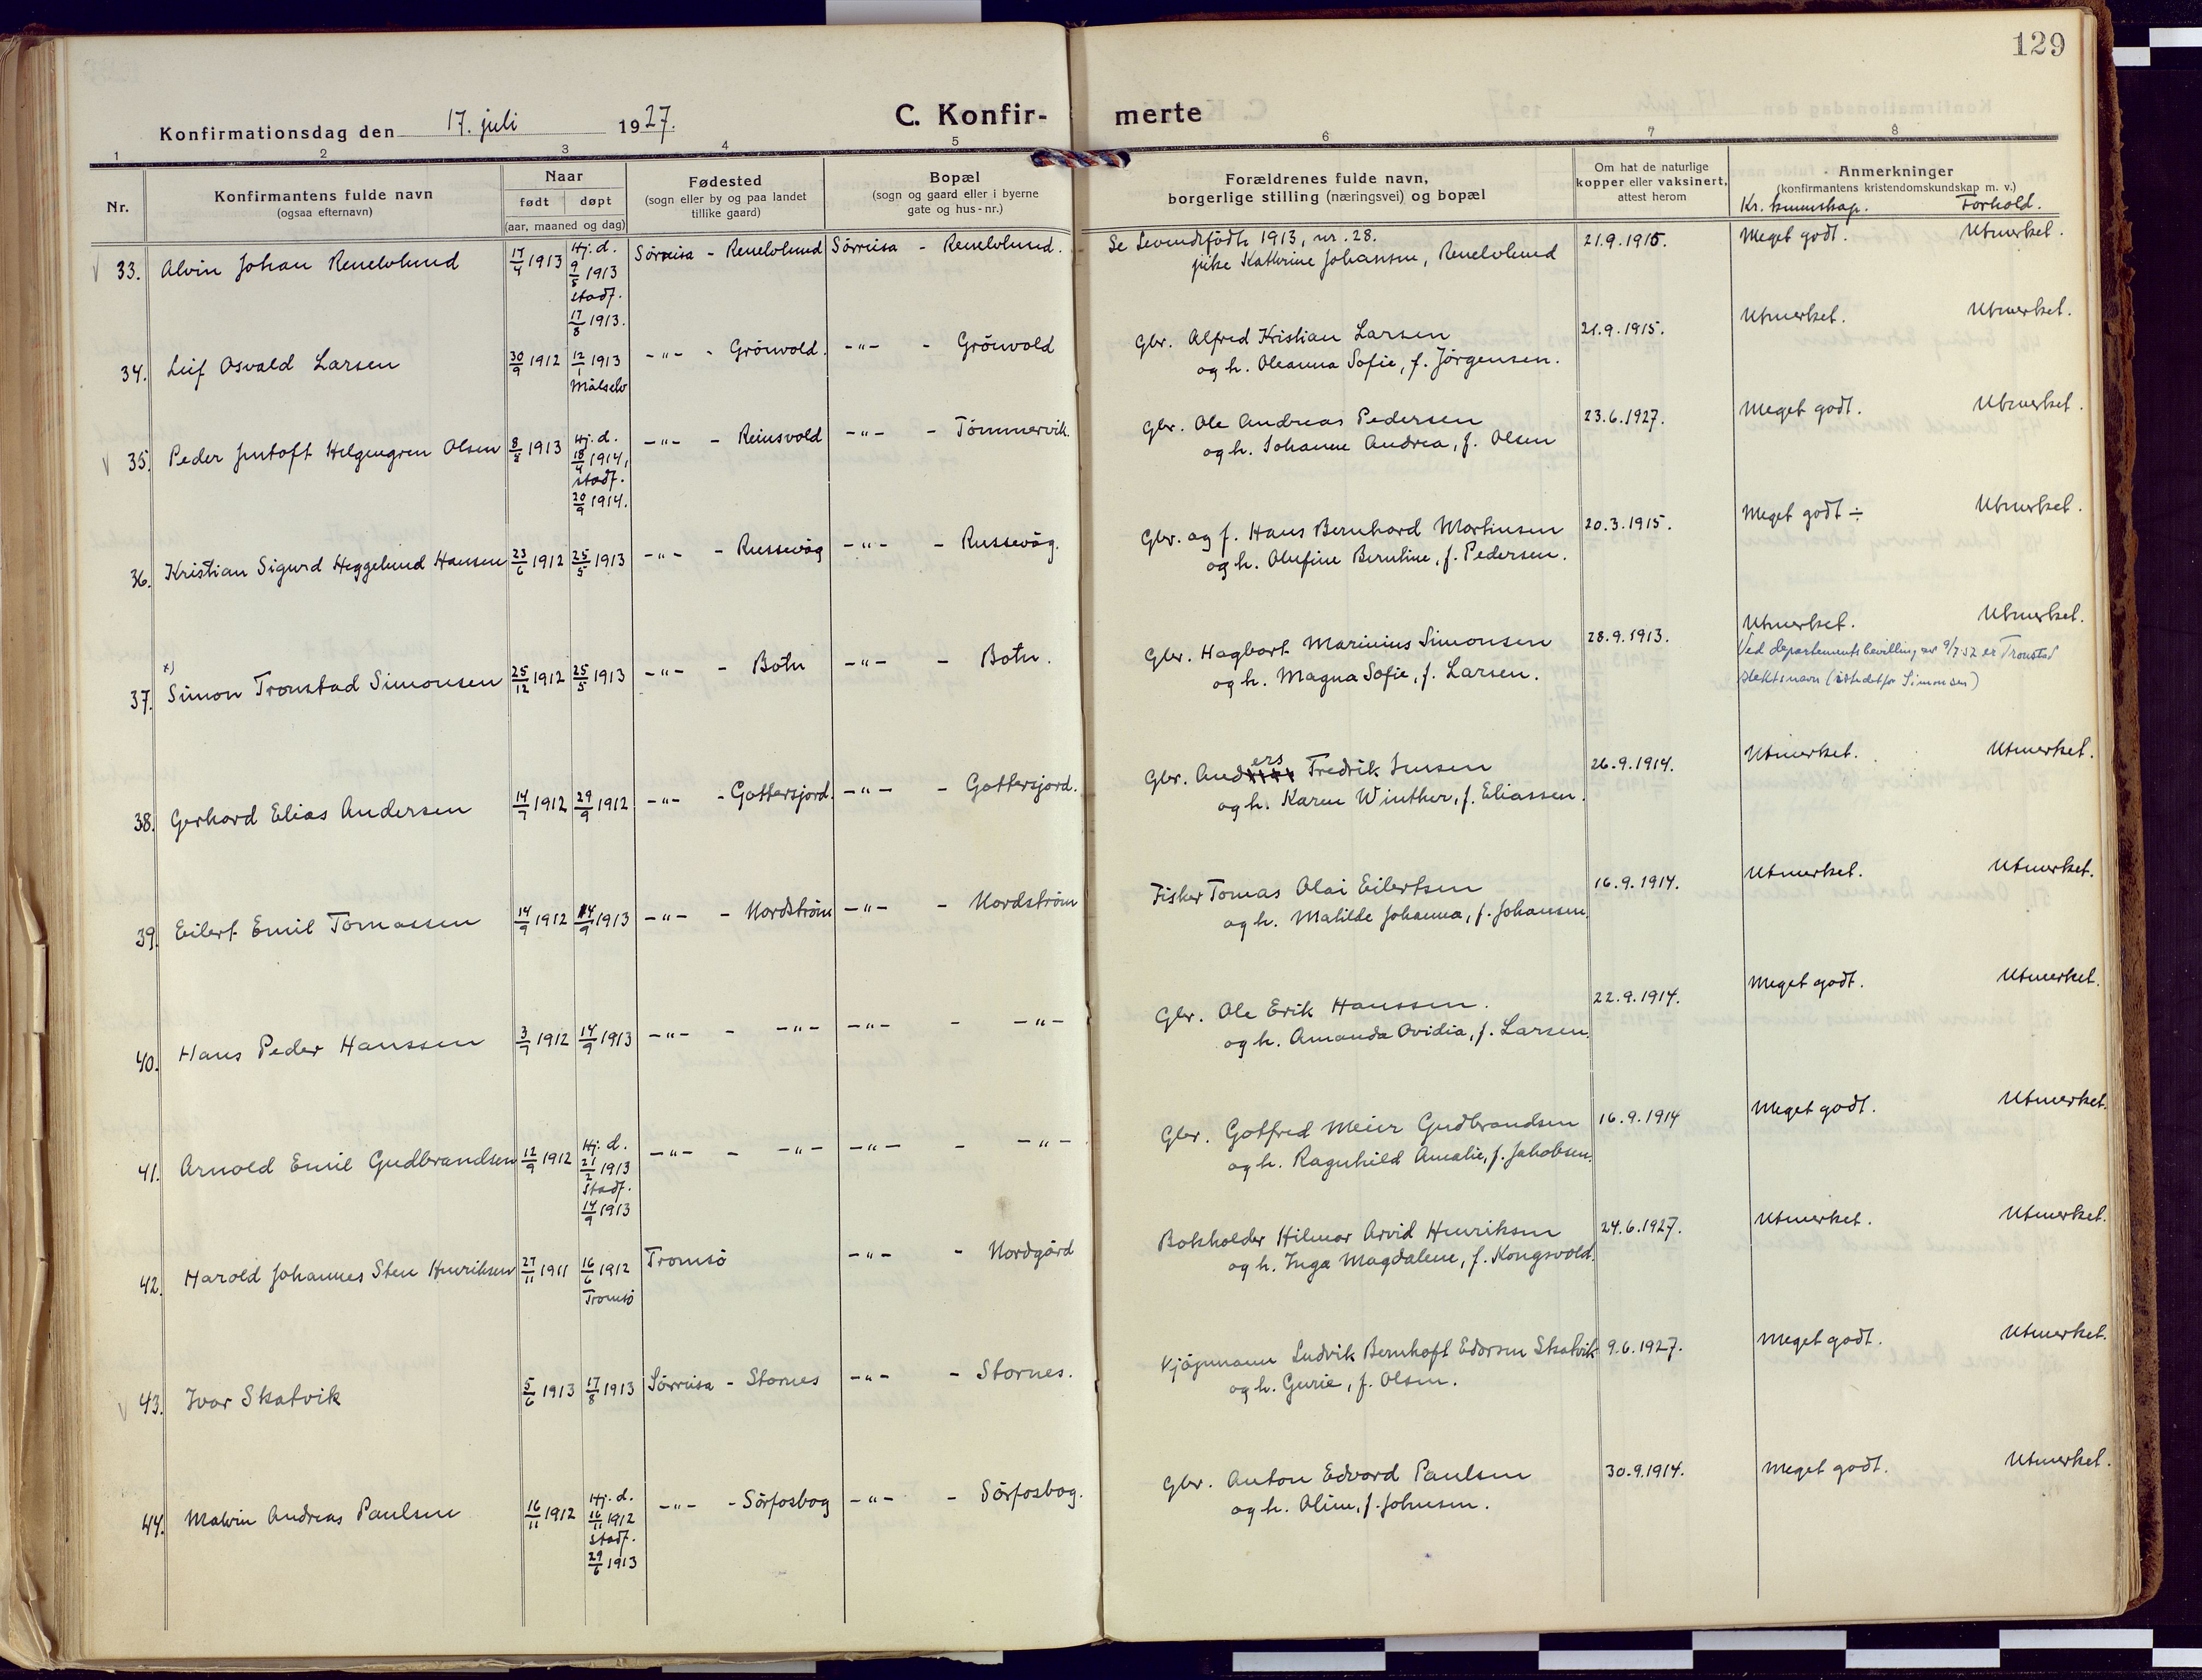 129
Konfirmationsdag den 17. juli 1927.
C. Konfir- merte
1 2 3 4 5 6 7 8
Nr.
Konfirmantens fulde navn
(ogsaa efternavn)
Naar
født døpt
(aar, maaned og dag)
Fødested
(sogn eller by og paa landet
tillike gaard)
Bopæl
(sogn og gaard eller i byerne
gate og hus-nr.)
Forældrenes fulde navn,
borgerlige stilling (næringsvei) og bopæl
Om hat de naturlige
kopper eller vaksinert,
attest herom
Anmerkninger
(konfirmantens kristendomskundskap m. v.)
Kr. kunnskap. Forhold.
33. Alvin Johan Renelvlund 17/4 1913 Hj. d. 9/5 1913 stadf. 17/8 1913. Sørreisa - Renelvlund Sørreisa - Renelvlund. Se Levendefødte 1913, nr. 28. 21.9.1915. Meget godt. Utmerket.
pike Kathrine Johansen, Renelvlund
34. Leif Osvald Larsen 30/9 1912 12/1 1913 Målselv -"- - Grönvold. -"- - Grönvold Gbr. Alfred Kristian Larsen 21.9.1915. Utmerket. Utmerket.
og h. Oleanna Sofie, f. Jörgensen.
35. Peder Jentoft Helgengren Olsen 8/8 1913 Hj. d. 18/4 1914, stadf. 20/9 1914. -"- - Reinsvold -"- - Tömmervik. Gbr. Ole Andreas Pedersen 23.6.1927. Meget godt. Utmerket.
og h. Johanne Andrea, f. Olsen
36. Kristian Sigurd Heggelund Hansen 23/6 1912 25/5 1913 -"- - Russevåg -"- - Russevåg. Gbr. og f. Hans Bernhard Martinsen 20.3.1915. Meget godt ÷ Utmerket.
og h. Olufine Berntine, f. Pedersen.
x)
37. Simon Tronstad Simonsen 25/12 1912 25/5 1913 -"- - Botn -"- - Botn. Gbr. Hagbart Marinius Simonsen 28.9.1913. Utmerket. Utmerket.
og h. Magna Sofie, f. Larsen.
Ved departements bevilling av 9/7 52 er Tronstad
slektsnavn (istedetfor Simonsen)
38. Gerhard Elias Andersen 14/7 1912 29/9 1912 -"- - Gottersjord. -"- - Gottersjord. Gbr. Anders Fredrik Jensen 26.9.1914. Utmerket. Utmerket.
og h. Karen Winther, f. Eliassen.
39. Eilert Emil Tomassen 14/9 1912 14/9 1913 -"- - Nordström -"- - Nordström Fisker Tomas Olai Eilertsen 16.9.1914. Utmerket. Utmerket.
og h. Matilde Johanna, f. Johansen.
40. Hans Peder Hanssen 3/7 1912 14/9 1913 -"- - -"- -"- - -"- Gbr. Ole Erik Hanssen. 22.9.1914. Meget godt. Utmerket.
og h. Amanda Ovidia, f. Larsen.
41. Arnold Emil Gudbrandsen 12/9 1912 Hj. d. 21/2 1913 Stadf. 14/9 1913 -"- - -"- -"- - -"- Gbr. Gotfred Meier Gudbrandsen 16.9.1914 Meget godt. Utmerket.
og h. Ragnhild Amalie, f. Jakobsen.
42. Harald Johannes Sten Henriksen 27/11 1911 16/6 1912 Tromsö Tromsö -"- - Nordgård Bokholder Hilmar Arvid Henriksen 24.6.1927. Utmerket. Utmerket.
og h. Inga Magdalene, f. Kongsvold.
43. Ivar Skatvik 5/6 1913 17/8 1913 Sørreisa - Stornes -"- - Stornes. Kjöpmann Ludvik Bernhoft Edorsen Skatvik 9.6.1927. Meget godt. Utmerket.
og h. Gurie, f. Olsen.
44. Malvin Andreas Paulsen 16/11 1912 Hj. d. 16/11 1912 stadf. 29/6 1913 -"- - Sörfosbog -"- - Sörfosbog. Gbr. Anton Edvard Paulsen 30.9.1914. Meget godt. Utmerket.
og h. Oline, f. Johnsen.